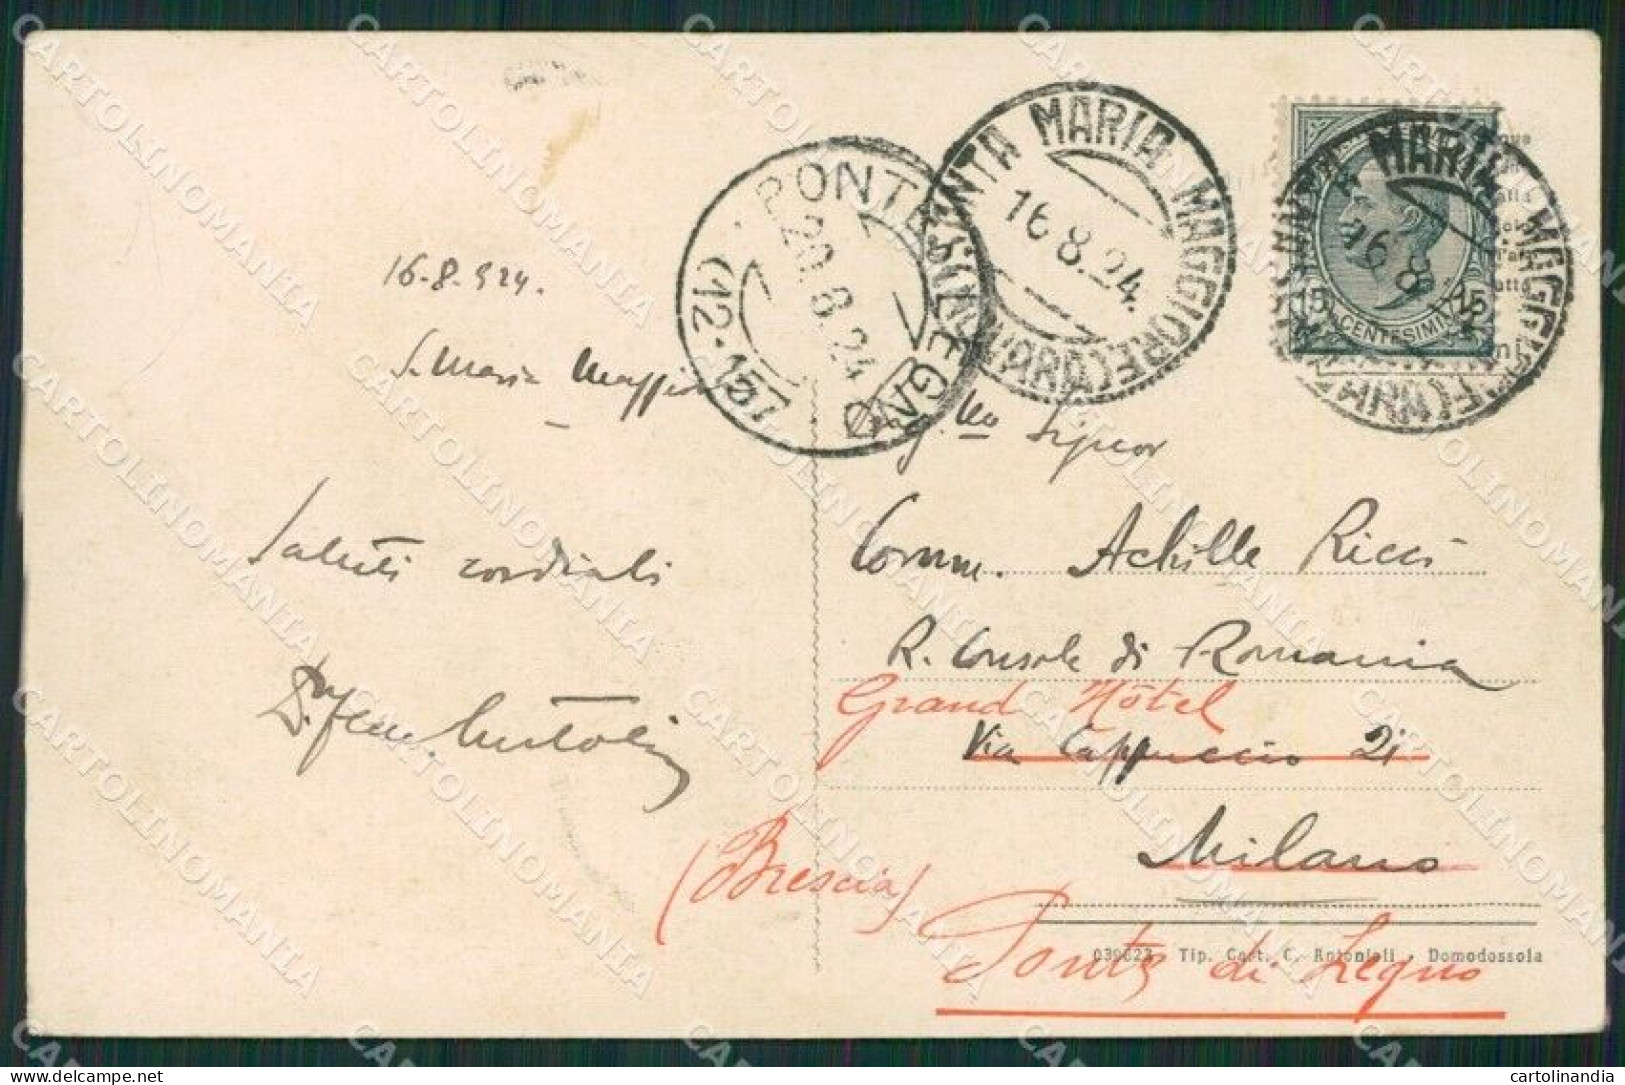 16-8-924.
S. Maria Maggiore
Saluti cordiali
PONTE DI LEGNO
20.8.24
(12-157)
SANTA MARIA MAGGIORE (NOVARA)
16.8.24.
MARIA MAGGIORE
16 8
15 15
CENTESIMI
Signor
Comm. Achille Ricci
R. Console di Romania
Grand Hôtel
Via Cappuccio 21
Milano
(Brescia)
Ponte di Legno
039623 - Tip. Cart. C. Antonioli - Domodossola
CARTOLINOMANIA
cartolinandia